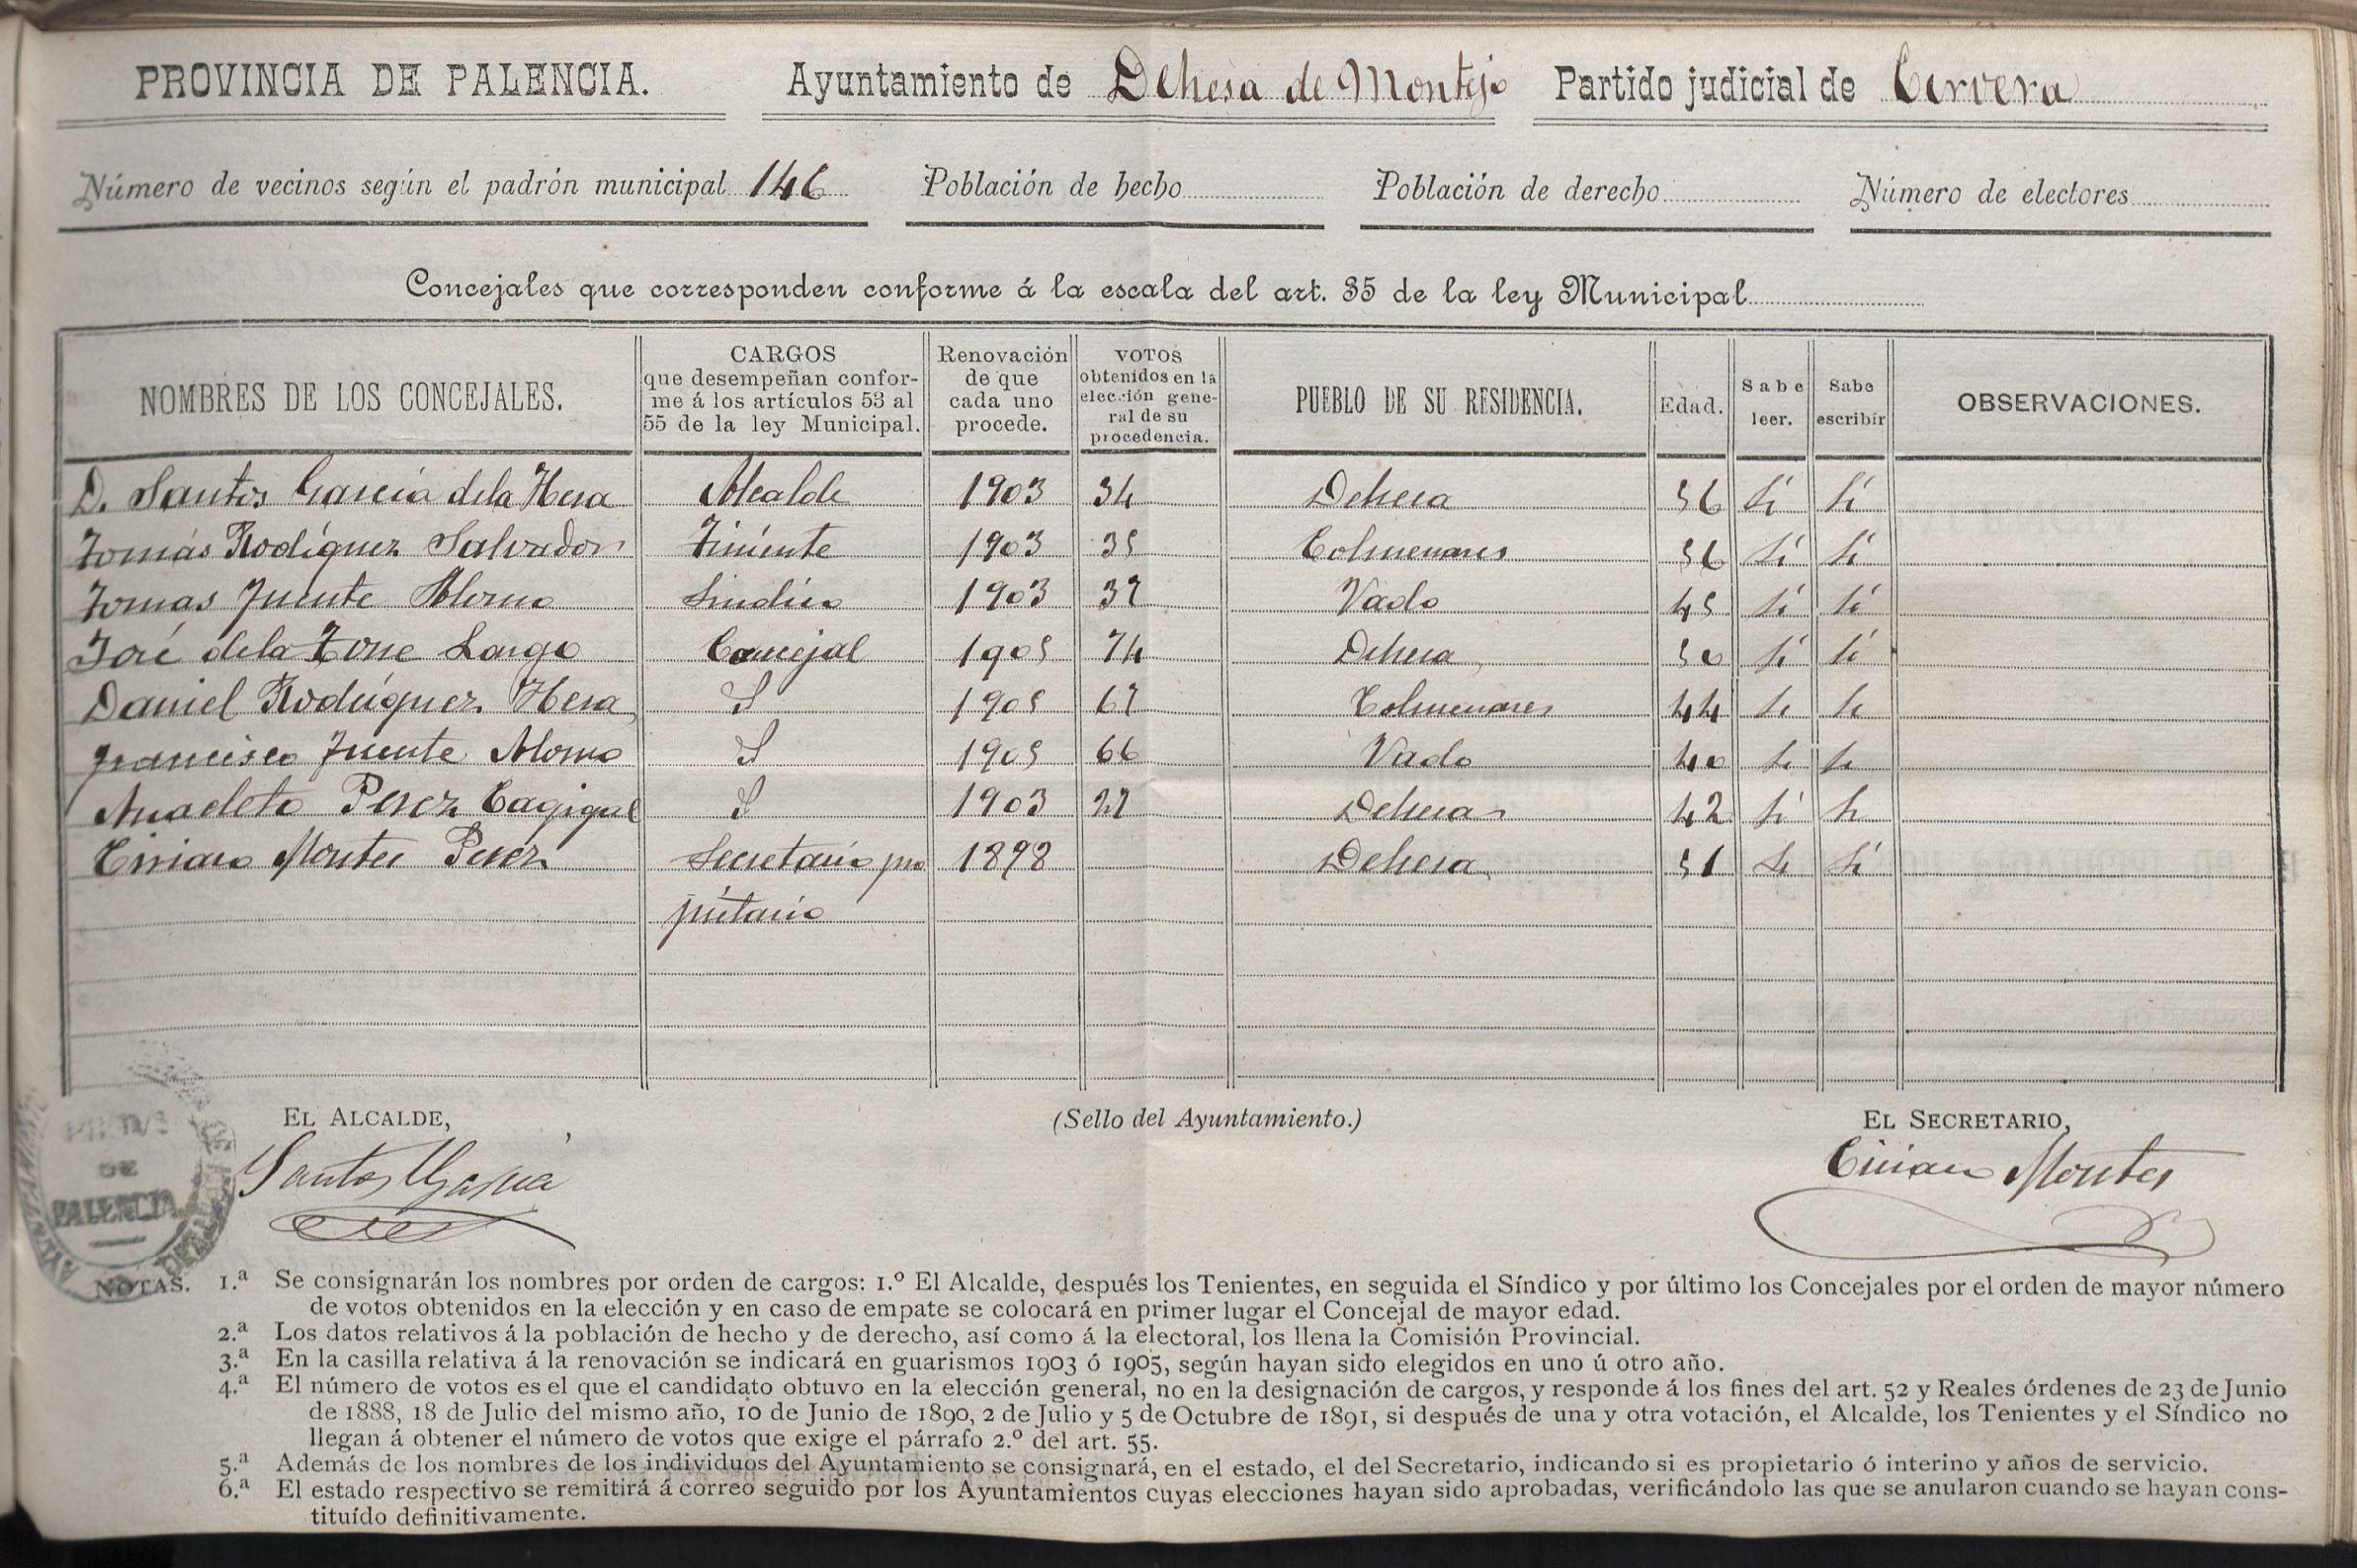 PROVINCIA DE PALENCIA. Ayuntamiento de Dehesa de Montejo Partido judicial de Cervera
Número de vecinos según el padrón municipal 146 Población de hecho Población de derecho Número de electores
Concejales que corresponden conforme á la escala del art. 35 de la ley Municipal
NOMBRES DE LOS CONCEJALES. CARGOS que desempeñan conforme á los artículos 53 al 55 de la ley Municipal. Renovación de que cada uno procede. VOTOS obtenidos en la elección general de su procedencia. PUEBLO DE SU RESIDENCIA. Edad. Sabe leer. Sabe escribir OBSERVACIONES.
D. Santos Garcia dela Hera Alcalde 1903 34 Dehesa 56 Sí Sí
Tomás Rodíguez Salvador Tiniente 1903 35 Colmenares 56 Sí Sí
Tomas Fuente Alonso Sindico 1903 37 Vado 45 Sí Sí
José dela Torre Largo Concejal 1905 74 Dehesa 50 Sí Sí
Daniel Rodriguez Hera 1905 67 Colmenares 44 Si Si
Francisco Fuente Alonso 1905 66 Vado 40 Si Si
Anacleto Perez Cagigal 1903 27 Dehesa 42 Si Si
Ciriaco Montes Perez Secretario pro 1898 Dehesa 51 Si Sí
pietario
EL ALCALDE, (Sello del Ayuntamiento.) EL SECRETARIO,
Santos Garcia Ciriaco Montes
DE
PALENCIA
NOTAS. 1.ª Se consignarán los nombres por orden de cargos: 1.º El Alcalde, después los Tenientes, en seguida el Síndico y por último los Concejales por el orden de mayor número
de votos obtenidos en la elección y en caso de empate se colocará en primer lugar el Concejal de mayor edad.
2.ª Los datos relativos á la población de hecho y de derecho, así como á la electoral, los llena la Comisión Provincial.
3.ª En la casilla relativa á la renovación se indicará en guarismos 1903 ó 1905, según hayan sido elegidos en uno ú otro año.
4.ª El número de votos es el que el candidato obtuvo en la elección general, no en la designación de cargos, y responde á los fines del art. 52 y Reales órdenes de 23 de Junio
de 1888, 18 de Julio del mismo año, 10 de Junio de 1890, 2 de Julio y 5 de Octubre de 1891, si después de una y otra votación, el Alcalde, los Tenientes y el Síndico no
llegan á obtener el número de votos que exige el párrafo 2.º del art. 55.
5.ª Además de los nombres de los individuos del Ayuntamiento se consignará, en el estado, el del Secretario, indicando si es propietario ó interino y años de servicio.
6.ª El estado respectivo se remitirá á correo seguido por los Ayuntamientos cuyas elecciones hayan sido aprobadas, verificándolo las que se anularon cuando se hayan cons-
tituído definitivamente.